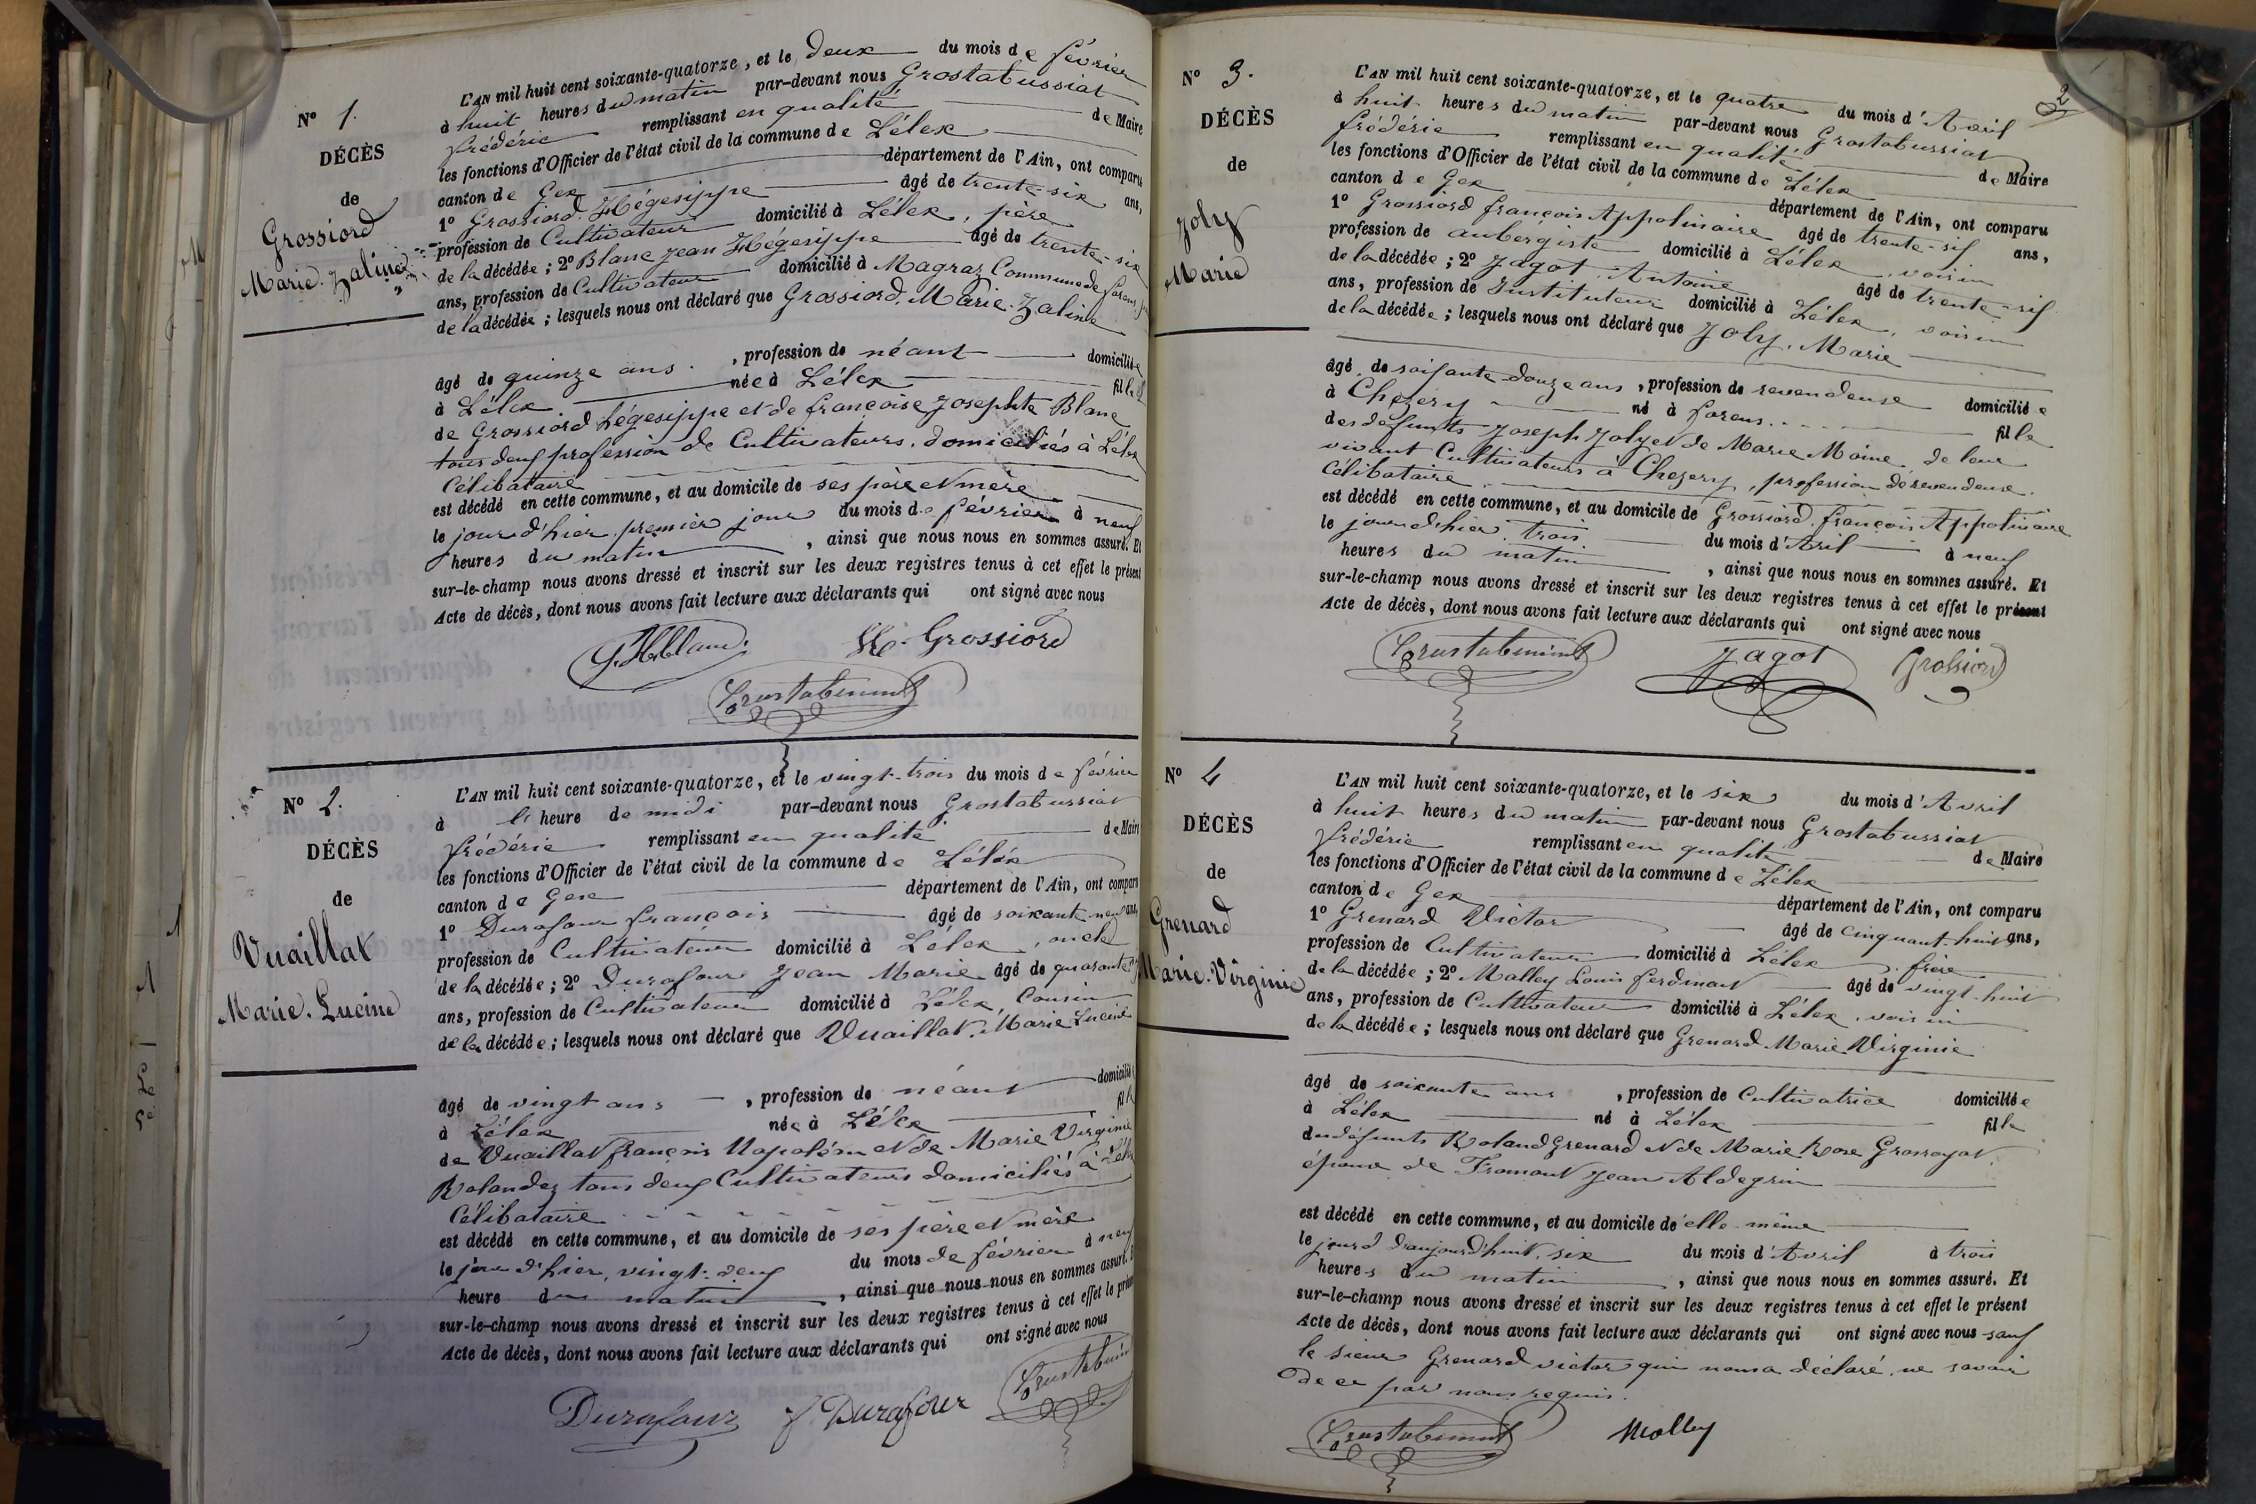 N° 1.
DÉCÈS
de
Grossiord
Marie Zaline
L'AN mil huit cent soixante-quatorze, et le deux du mois de février
à huit heures du matin par-devant nous Grostabussiat
frédéric remplissant en qualité de Maire
les fonctions d'Officier de l'état civil de la commune de Lélex
canton de Gex département de l'Ain, ont comparu
1° Grossiord Hégesippe âgé de trente-six ans,
profession de Cultivateur domicilié à Lélex, père
de la décédée ; 2° Blanc Jean Hégesippe âgé de trente-six
ans, profession de Cultivateur domicilié à Magraz Commune de forens
de la décédée ; lesquels nous ont déclaré que Grossiord, Marie Zaline
âgé de quinze ans. , profession de néant domiciliée
à Lélex née à Lélex fille
de Grossiord hégesippe et de françoise Josephte Blanc
tous deux profession de Cultivateurs, domiciliés à Lélex
Célibataire
est décédé en cette commune, et au domicile de ses père et mère
le jour d'hier premier jour du mois de février à neuf
heures du matin , ainsi que nous nous en sommes assuré. Et
sur-le-champ nous avons dressé et inscrit sur les deux registres tenus à cet effet le présent
Acte de décès, dont nous avons fait lecture aux déclarants qui ont signé avec nous
J. H. Blanc H. Grossiord
Grostabussiat
N° 2.
DÉCÈS
de
Vuaillat
Marie Lucine
L'AN mil huit cent soixante-quatorze, et le vingt-trois du mois de février
à l' heure de midi par-devant nous Grostabussiat
frédéric remplissant en qualité de Maire
les fonctions d'Officier de l'état civil de la commune de Lélex
canton de Gex département de l'Ain, ont comparu
1° Durafour françois âgé de soixante-neuf ans,
profession de Cultivateur domicilié à Lélex, oncle
de la décédée ; 2° Durafour Jean Marie âgé de quarante
ans, profession de Cultivateur domicilié à Lélex, Cousin
de la décédée ; lesquels nous ont déclaré que Vuaillat, Marie Lucine
âgé de vingt ans , profession de néant domiciliée
à Lélex née à Lélex fille
de Vuaillat françois Napoléon et de Marie Virginie
Rolandez tous deux Cultivateurs domiciliés à Lélex
Célibataire
est décédé en cette commune, et au domicile de ses père et mère
le jour d'hier, vingt-deux du mois de février à neuf
heure du matin , ainsi que nous nous en sommes assuré.
sur-le-champ nous avons dressé et inscrit sur les deux registres tenus à cet effet le présent
Acte de décès, dont nous avons fait lecture aux déclarants qui ont signé avec nous
Durafour J. Durafour Grostabussiat
2
N° 3.
DÉCÈS
de
Joly
Marie
L'AN mil huit cent soixante-quatorze, et le quatre du mois d'Avril
à huit heures du matin par-devant nous Grostabussiat
frédéric remplissant en qualité de Maire
les fonctions d'Officier de l'état civil de la commune de Lélex
canton de Gex département de l'Ain, ont comparu
1° Grossiord françois Appolinaire âgé de trente-six ans,
profession de aubergiste domicilié à Lélex, voisin
de la décédée ; 2° Jagot, Antoine âgé de trente-six
ans, profession de Instituteur domicilié à Lélex, voisin
de la décédée ; lesquels nous ont déclaré que Joly, Marie
âgé de soixante-douze ans , profession de revendeuse domiciliée
à Chezery né à forens fille
des défunts Joseph Joly et de Marie Moine, de leur
vivant Cultivateurs à Chezery, profession de revendeuse.
Célibataire
est décédé en cette commune, et au domicile de Grossiord, françois Appolinaire
le jour d'hier, trois du mois d'Avril à neuf
heures du matin , ainsi que nous nous en sommes assuré. Et
sur-le-champ nous avons dressé et inscrit sur les deux registres tenus à cet effet le présent
Acte de décès, dont nous avons fait lecture aux déclarants qui ont signé avec nous
Grostabussiat Jagot Grossiord
N° 4
DÉCÈS
de
Grenard
Marie Virginie
L'AN mil huit cent soixante-quatorze, et le six du mois d'Avril
à huit heures du matin par-devant nous Grostabussiat
frédéric remplissant en qualité de Maire
les fonctions d'Officier de l'état civil de la commune de Lélex
canton de Gex département de l'Ain, ont comparu
1° Grenard Victor âgé de cinquant-huit ans,
profession de Cultivateur domicilié à Lélex, frère
de la décédée ; 2° Molley Louis ferdinant âgé de vingt-huit
ans, profession de Cultivateur domicilié à Lélex, voisin
de la décédée ; lesquels nous ont déclaré que Grenard Marie Virginie
âgé de soixante ans , profession de Cultivatrice domiciliée
à Lélex né à Lélex fille
du défunts Roland Grenard et de Marie Rose Grosroyat,
épouse de Fromont Jean Aldegrin
est décédé en cette commune, et au domicile de elle-même
le jour d'aujourd'huit, six du mois d'Avril à trois
heures du matin , ainsi que nous nous en sommes assuré. Et
sur-le-champ nous avons dressé et inscrit sur les deux registres tenus à cet effet le présent
Acte de décès, dont nous avons fait lecture aux déclarants qui ont signé avec nous sauf
le sieur Grenard victor qui nous a déclaré ne savoir
de ce par nous requis.
Grostabussiat Molley